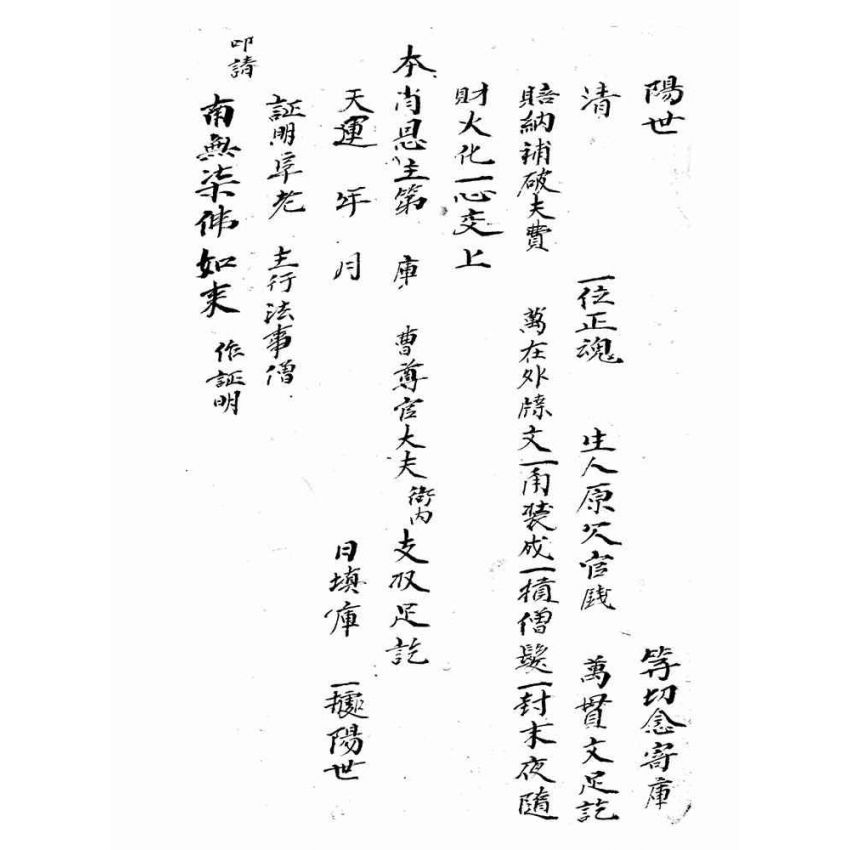 陽世 等切念寄庫
清 一位正魂 生人原欠官錢 萬貫文足訖
賠納補破夫費 萬在外牒文一角装成一擯僧髮一封末夜隨
財火化一心交上
本肖恩主第 庫 曹尊官大夫衙内支収足訖
天運 年 月 日填庫 一據陽世
証明享老 主行法事僧
叩請
南無柒佛如来 作証明